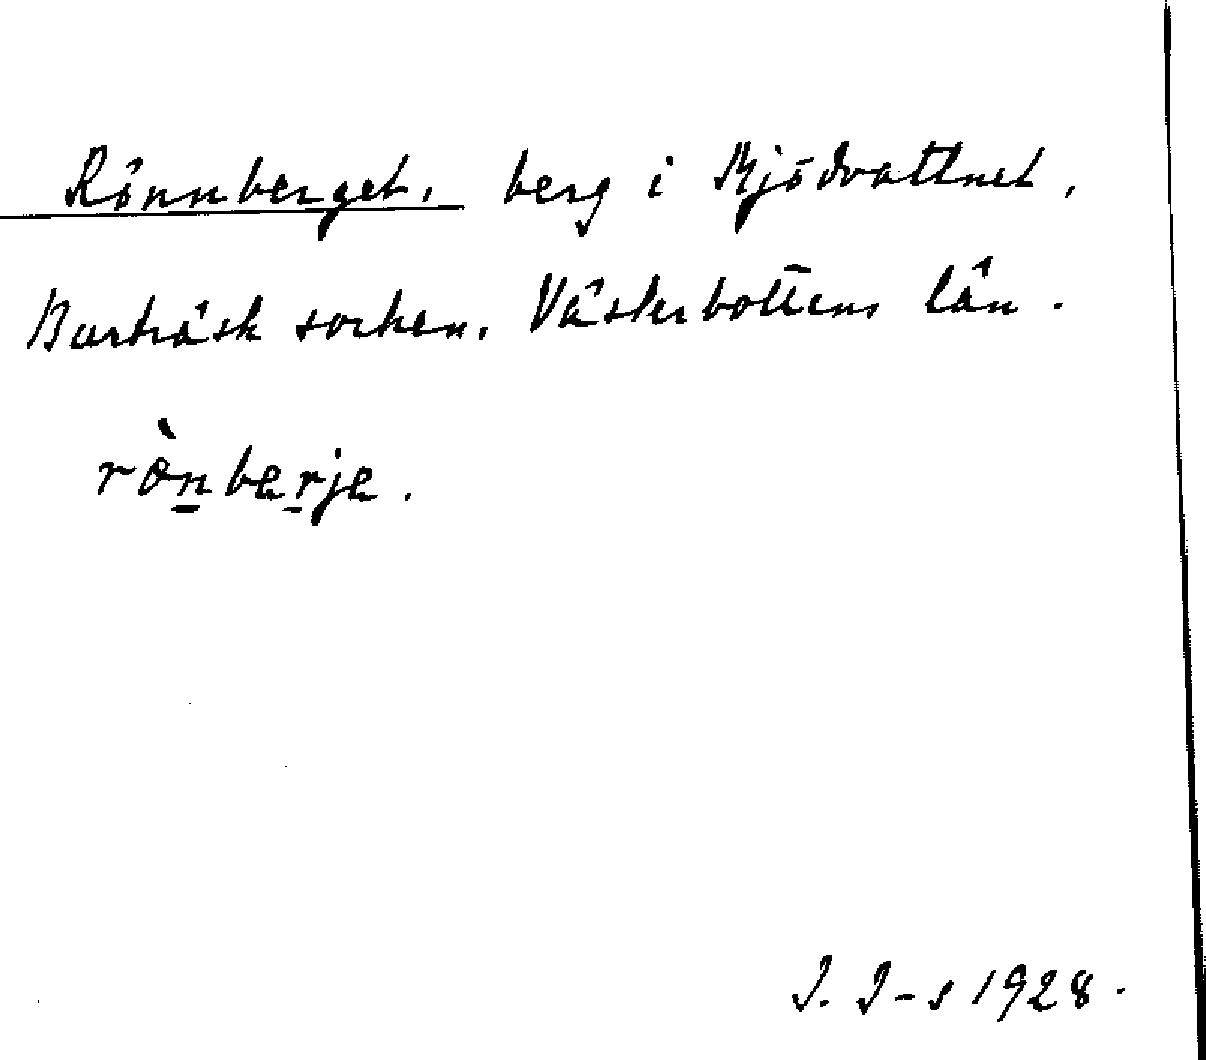 Rönnberget, berg i Mjödvattnet,
Burträsk socken, Västerbottens län.
rònberje.
J. J-s 1928.